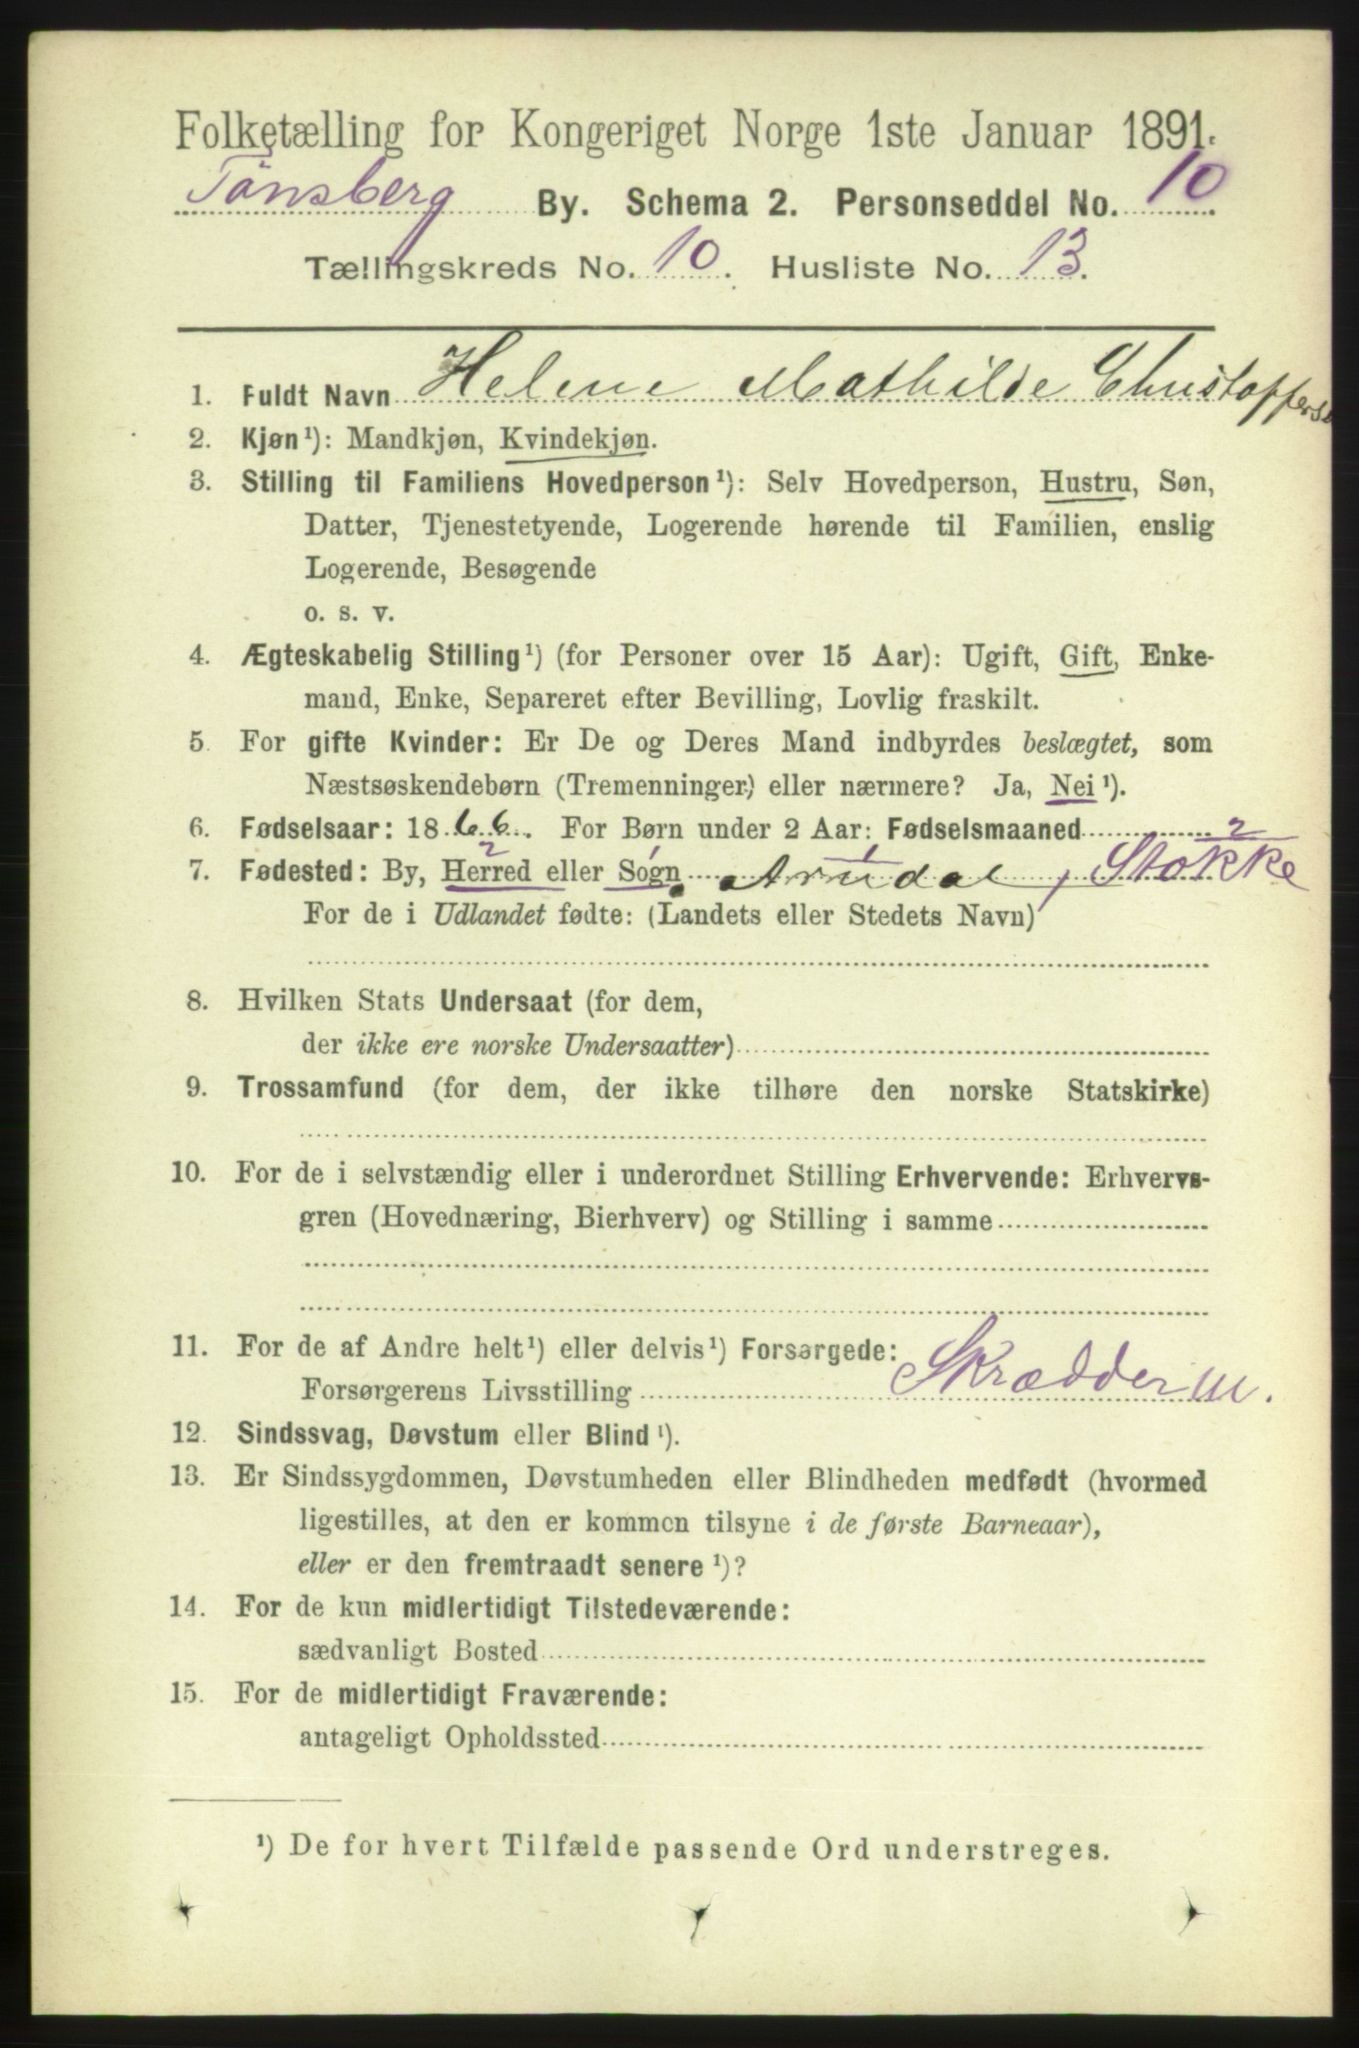 Folketælling for Kongeriget Norge 1ste Januar 1891.
Tønsberg By. Schema 2. Personseddel No. 10
Tællingskreds No. 10. Husliste No. 13.
1. Fuldt Navn Helene Mathilde Christoffers
2. Kjøn¹): Mandkjøn, Kvindekjøn.
3. Stilling til Familiens Hovedperson¹): Selv Hovedperson, Hustru, Søn,
Datter, Tjenestetyende, Logerende hørende til Familien, enslig
Logerende, Besøgende
o. s. v.
4. Ægteskabelig Stilling¹) (for Personer over 15 Aar): Ugift, Gift, Enke-
mand, Enke, Separeret efter Bevilling, Lovlig fraskilt.
5. For gifte Kvinder: Er De og Deres Mand indbyrdes beslægtet, som
Næstsøskendebørn (Tremenninger) eller nærmere? Ja, Nei¹).
6. Fødselsaar: 1866. For Børn under 2 Aar: Fødselsmaaned
2 1 1 2
7. Fødested: By, Herred eller Sogn Arndal, Stokke
For de i Udlandet fødte: (Landets eller Stedets Navn)
8. Hvilken Stats Undersaat (for dem,
der ikke ere norske Undersaatter)
9. Trossamfund (for dem, der ikke tilhøre den norske Statskirke)
10. For de i selvstændig eller i underordnet Stilling Erhvervende: Erhvervs-
gren (Hovednæring, Bierhverv) og Stilling i samme
11. For de af Andre helt¹) eller delvis¹) Forsørgede:
Forsørgerens Livsstilling Skrædder m.
12. Sindssvag, Døvstum eller Blind¹).
13. Er Sindssygdommen, Døvstumheden eller Blindheden medfødt (hvormed
ligestilles, at den er kommen tilsyne i de første Barneaar),
eller er den fremtraadt senere¹)?
14. For de kun midlertidigt Tilstedeværende:
sædvanligt Bosted
15. For de midlertidigt Fraværende:
antageligt Opholdssted
¹) De for hvert Tilfælde passende Ord understreges.